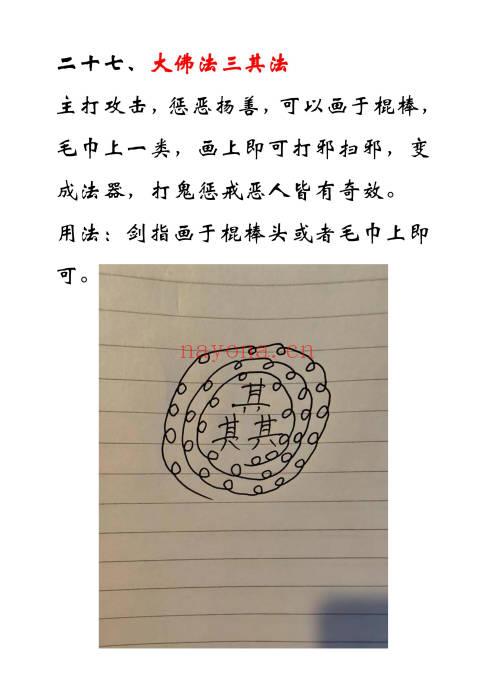 二十七、大佛法三其法
主打攻击，惩恶扬善，可以画于棍棒，
毛巾上一类，画上即可打邪扫邪，变
成法器，打鬼惩戒恶人皆有奇效。
用法：剑指画于棍棒头或者毛巾上即
可。
nayona.cn
其
其其